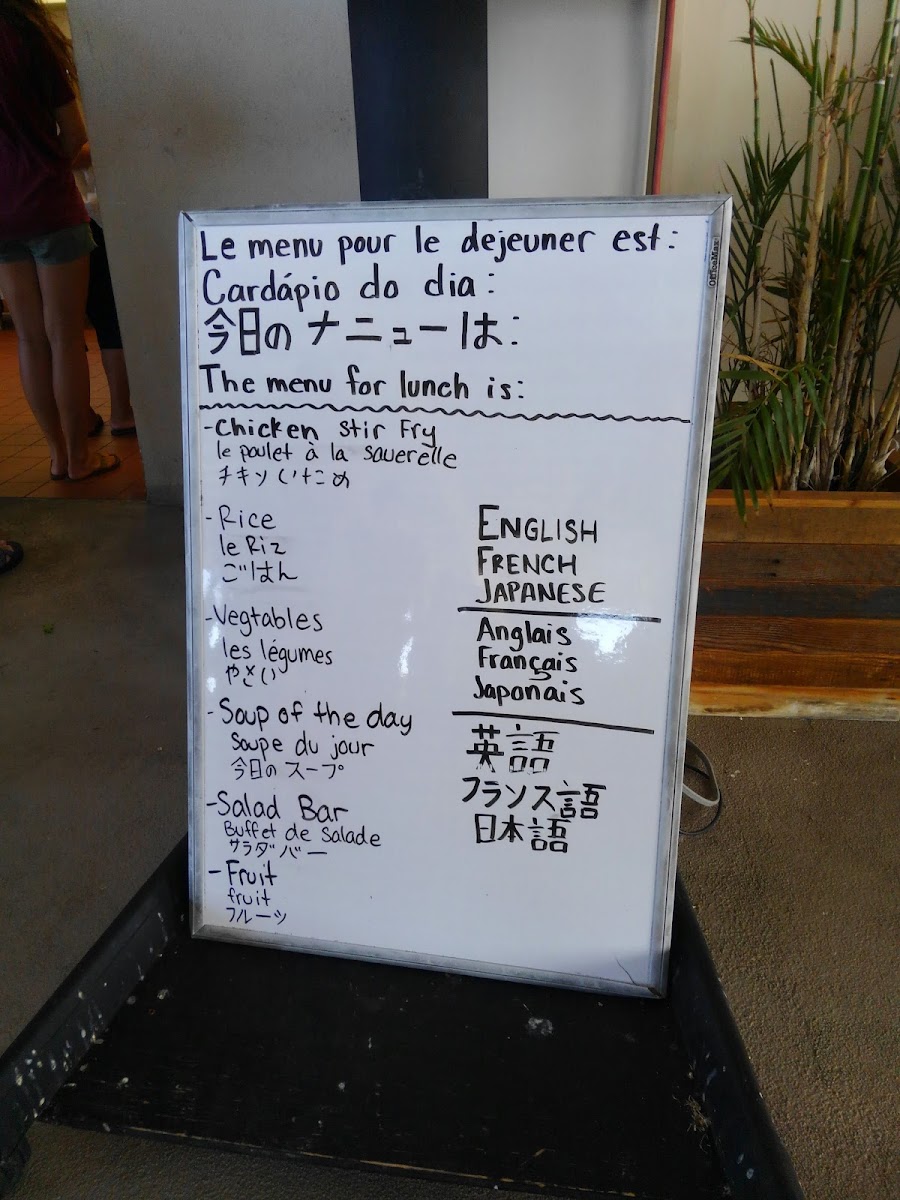 Le menu pour le dejeuner est:
Cardápio do dia:
今日の ナニューは:
The menu for lunch is:
-Chicken Stir Fry
le poulet à la sauerelle
チキソいため
-Rice
le Riz
ごはん
-Vegtables
les légumes
やさい
-Soup of the day
Soupe du jour
今日の スープ
-Salad Bar
Buffet de Salade
サラダバー
-Fruit
fruit
フルーツ
ENGLISH
FRENCH
JAPANESE
Anglais
Français
Japonais
英語
フランス語
日本語
OfficeMax